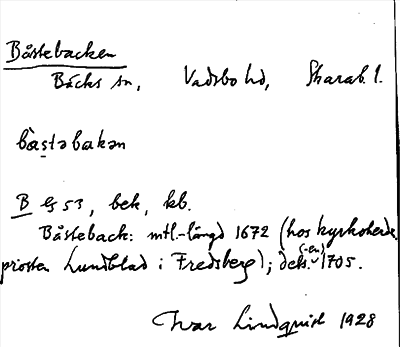 Båstebacken
Bäcks sn, Vadsbo hd, Skarab. l.
bàstəbakən
B Eg 53, bek, kb.
Båsteback: mtl.-längd 1672 (hos kyrkoherde
prosten Lundblad i Fredsberg); deks. (-en) 1705.
Ivar Lindquist 1928